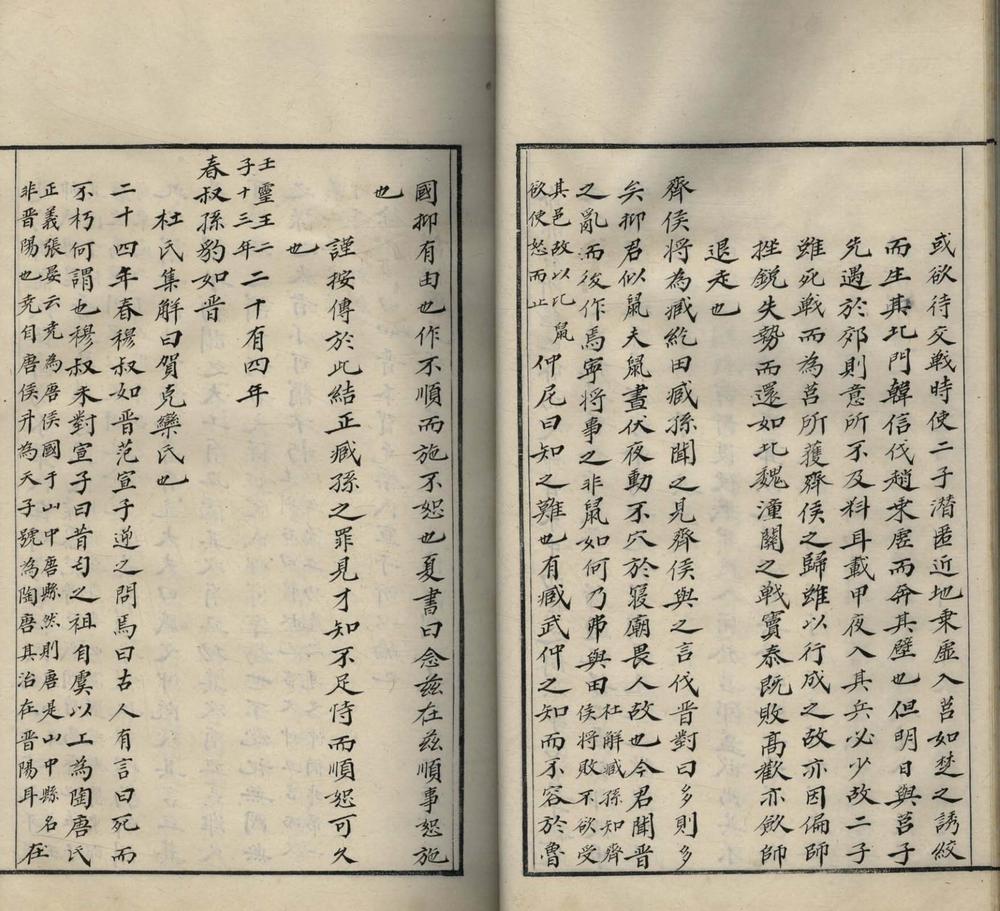 或欲待交戰時使二子潛匿近地秉虛入莒如楚之誘絞
而坐其北門韓信伐趙秉虛而奔其壁也但明日與莒子
先遇於郊則意所不及料耳載甲夜入其兵必少故二子
雖死戰而為莒所獲齊侯之歸雖以行成之故亦因偏師
挫銳失勢而還如北魏潼關之戰竇泰既敗高歡亦斂師
退走也
齊侯將為臧紇田臧孫聞之見齊侯與之言伐晉對曰多則多
矣抑君似鼠夫鼠晝伏夜動不穴於寢廟畏人故也今君聞晉
之亂而後作焉寧將事之非鼠如何乃弗與田
杜解臧孫知齊
侯將敗不欲受
其邑故以比鼠
欲使怒而止
仲尼曰知之難也有臧武仲之知而不容於魯
國抑有由也作不順而施不恕也夏書曰念茲在茲順事恕施
也
謹按傳於此結正臧孫之罪見才知不足恃而順恕可久
也
壬靈王二
子十三年
二十有四年
春叔孫豹如晉
杜氏集解曰賀克欒氏也
二十四年春穆叔如晉范宣子逆之問焉曰古人有言曰死而
不朽何謂也穆叔未對宣子曰昔匄之祖自虞以上為陶唐氏
正義張晏云堯為唐侯國于山中唐縣然則唐是山中縣名在
非晉陽也堯自唐侯升為天子號為陶唐其治在晉陽耳